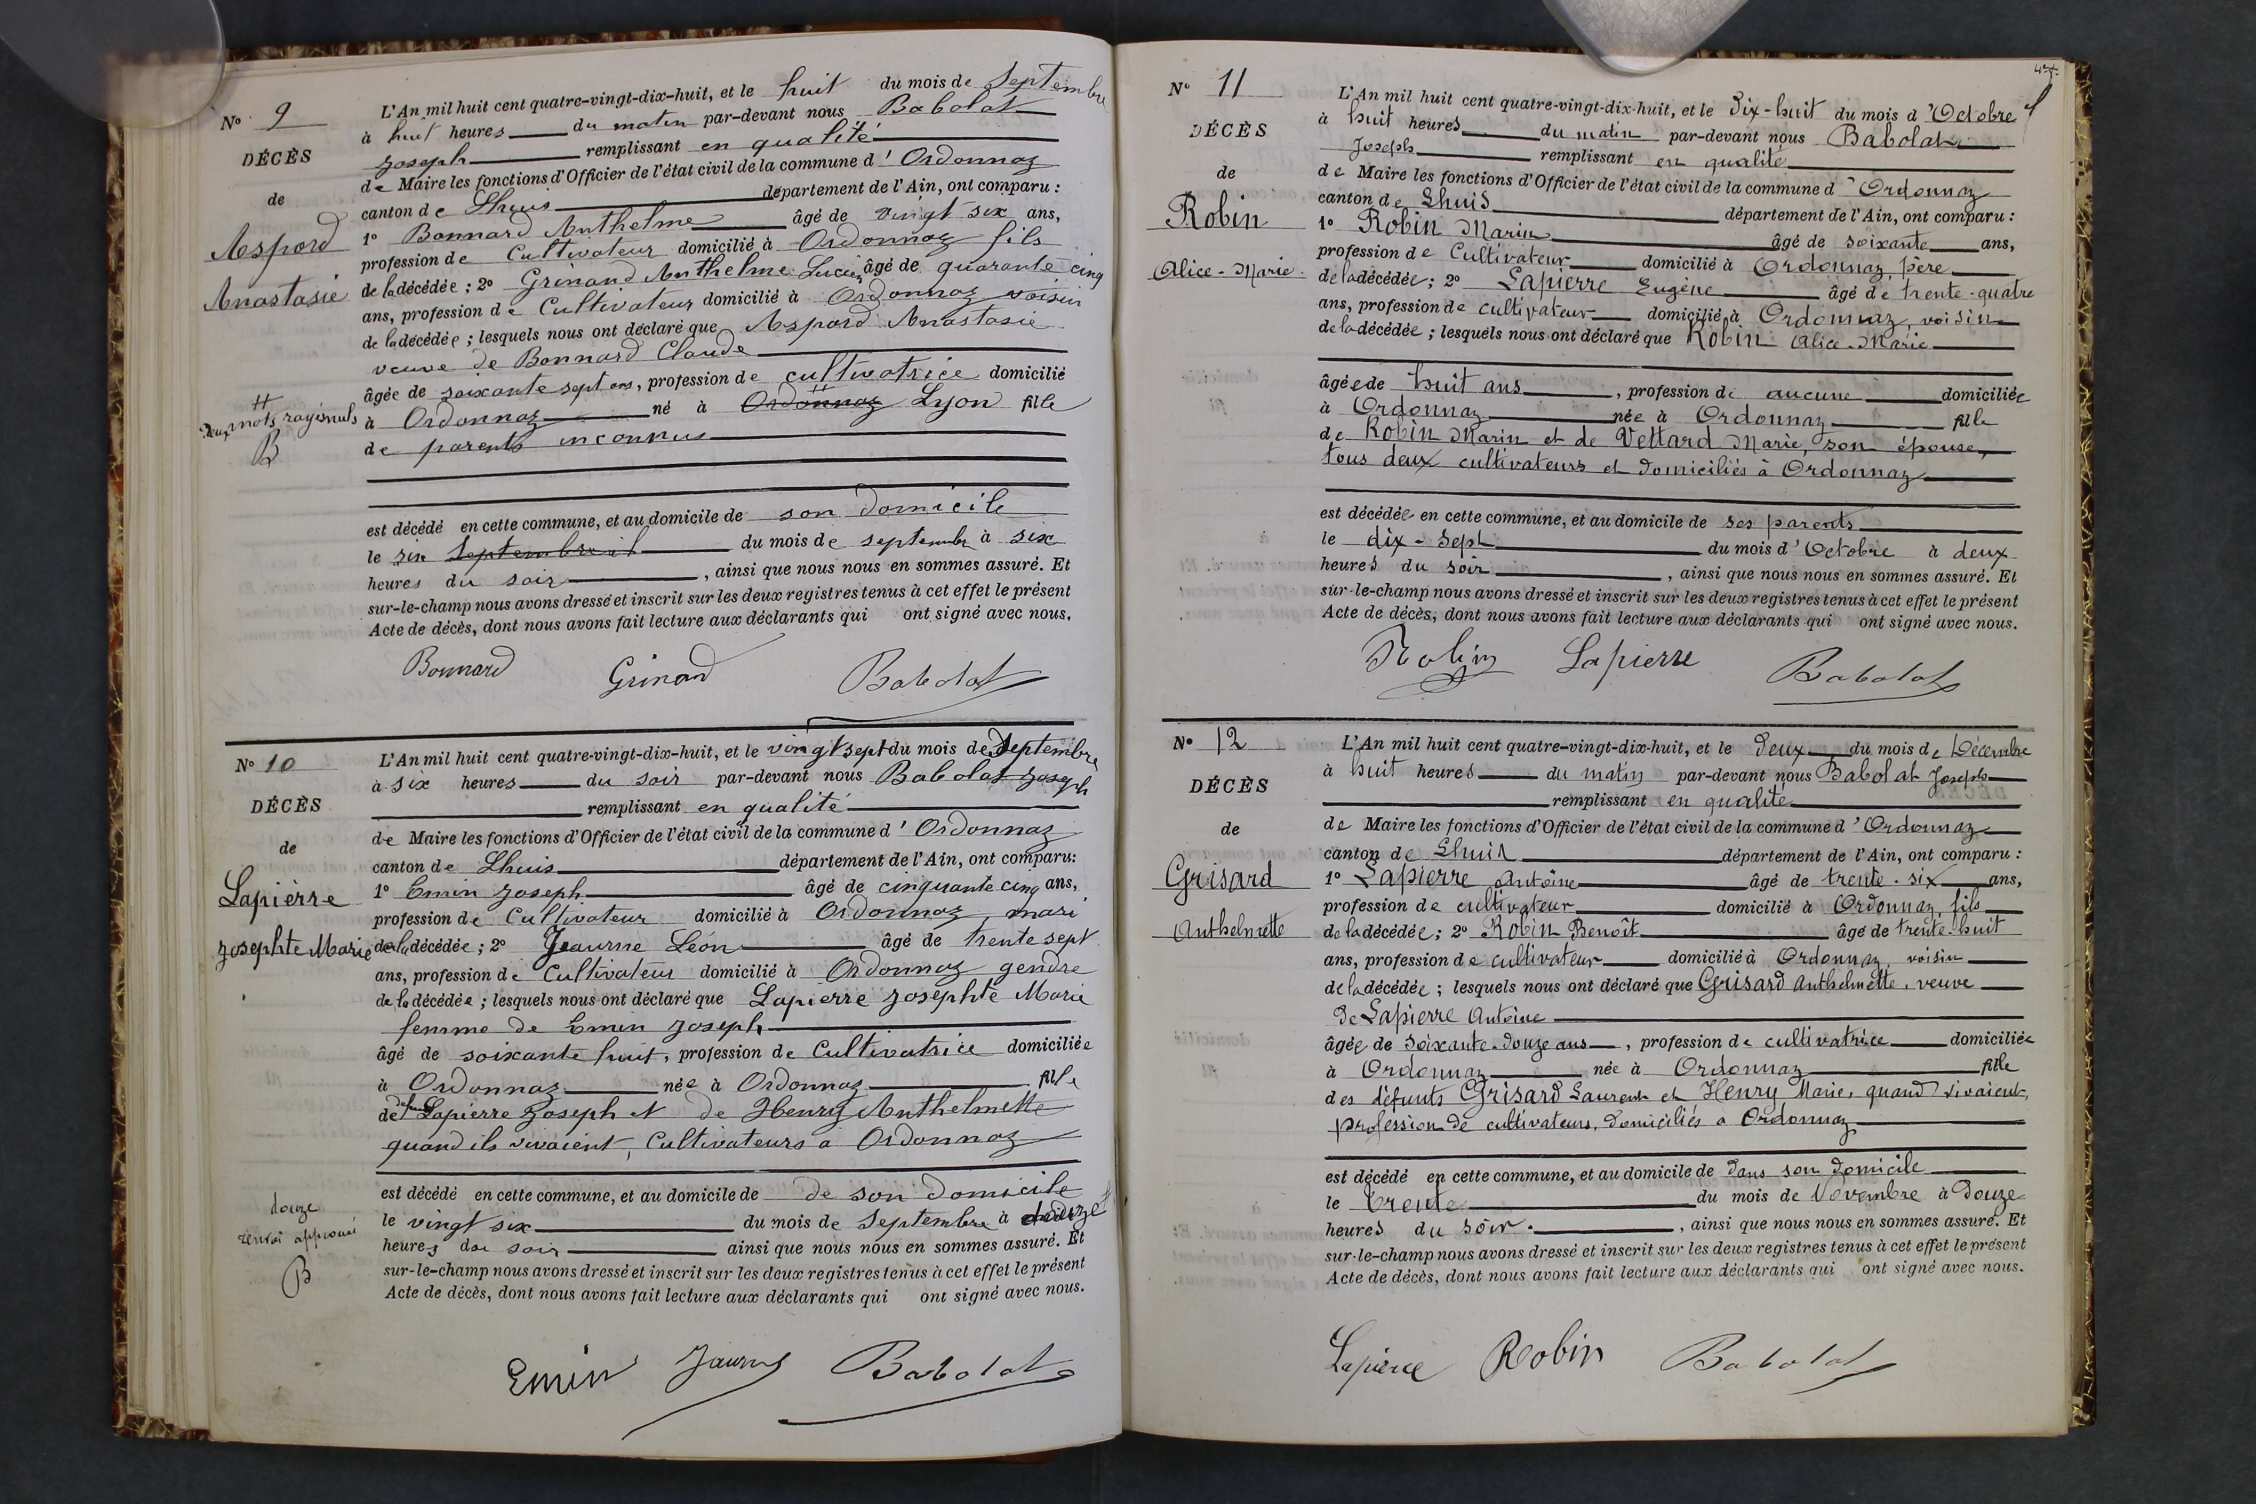 N° 9
DÉCÈS
de
Aspord
Anastasie
#
deux mots rayés nuls
B
L'An mil huit cent quatre-vingt-dix-huit, et le huit du mois de Septembre
à huit heures du matin par-devant nous Babolat
Joseph remplissant en qualité
de Maire les fonctions d'Officier de l'état civil de la commune d'Ordonnaz
canton de Lhuis département de l'Ain, ont comparu :
1° Bonnard Anthelme âgé de vingt six ans,
profession de Cultivateur domicilié à Ordonnaz fils
de la décédée ; 2° Grinand Anthelme Lucien âgé de quarante cinq
ans, profession de Cultivateur domicilié à Ordonnaz voisin
de la décédée ; lesquels nous ont déclaré que Aspord Anastasie
veuve de Bonnard Claude
âgée de soixante sept ans, profession de cultivatrice domicilié
à Ordonnaz né à Ordonnaz Lyon fille
de parents inconnus
est décédé en cette commune, et au domicile de son domicile
le six Septembre du mois de septembre à six
heures du soir, ainsi que nous nous en sommes assuré. Et
sur-le-champ nous avons dressé et inscrit sur les deux registres tenus à cet effet le présent
Acte de décès, dont nous avons fait lecture aux déclarants qui ont signé avec nous.
Bonnard Grinand Babolat
N° 10
DÉCÈS
de
Lapierre
Josephte Marie
douze
renvoi approuvé
B
L'An mil huit cent quatre-vingt-dix-huit, et le vingt sept du mois de Septembre
à six heures du soir par-devant nous Babolat Joseph
remplissant en qualité
de Maire les fonctions d'Officier de l'état civil de la commune d'Ordonnaz
canton de Lhuis département de l'Ain, ont comparu:
1° Emin Joseph âgé de cinquante cinq ans,
profession de Cultivateur domicilié à Ordonnaz, mari
de la décédée ; 2° Jeaurne Léon âgé de trente sept
ans, profession de Cultivateur domicilié à Ordonnaz gendre
de la décédée ; lesquels nous ont déclaré que Lapierre Josephte Marie
femme de Emin Joseph
âgé de soixante huit, profession de Cultivatrice domiciliée
à Ordonnaz née à Ordonnaz fille
de Lapierre Joseph et de Henry Anthelmette
quand ils vivaient, Cultivateurs à Ordonnaz
est décédé en cette commune, et au domicile de de son domicile
le vingt six du mois de Septembre à douze #
heures du soir ainsi que nous nous en sommes assuré. Et
sur-le-champ nous avons dressé et inscrit sur les deux registres tenus à cet effet le présent
Acte de décès, dont nous avons fait lecture aux déclarants qui ont signé avec nous.
Emin Jaurne Babolat
N° 11
DÉCÈS
de
Robin
Alice-Marie
L'An mil huit cent quatre-vingt-dix-huit, et le Dix-huit du mois d'Octobre
à huit heures du matin par-devant nous Babolat
Joseph remplissant en qualité
de Maire les fonctions d'Officier de l'état civil de la commune d'Ordonnaz
canton de Lhuis département de l'Ain, ont comparu :
1° Robin Marin âgé de soixante ans,
profession de Cultivateur domicilié à Ordonnaz, père
de la décédée ; 2° Lapierre Eugène âgé de trente-quatre
ans, profession de cultivateur domicilié à Ordonnaz, voisin
de la décédée ; lesquels nous ont déclaré que Robin Alice-Marie
âgée de huit ans, profession de aucune domiciliée
à Ordonnaz née à Ordonnaz fille
de Robin Marin et de Vettard Marie, son épouse,
tous deux cultivateurs et domiciliés à Ordonnaz
est décédée en cette commune, et au domicile de ses parents
le dix-sept du mois d'Octobre à deux
heures du soir, ainsi que nous nous en sommes assuré. Et
sur-le-champ nous avons dressé et inscrit sur les deux registres tenus à cet effet le présent
Acte de décès, dont nous avons fait lecture aux déclarants qui ont signé avec nous.
Robin Lapierre Babolat
N° 12
DÉCÈS
de
Grisard
Anthelmette
L'An mil huit cent quatre-vingt-dix-huit, et le Deux du mois de Décembre
à huit heures du matin par-devant nous Babolat Joseph
remplissant en qualité
de Maire les fonctions d'Officier de l'état civil de la commune d'Ordonnaz
canton de Lhuis département de l'Ain, ont comparu :
1° Lapierre Antoine âgé de trente-six ans,
profession de cultivateur domicilié à Ordonnaz, fils
de la décédée ; 2° Robin Benoît âgé de trente-huit
ans, profession de cultivateur domicilié à Ordonnaz, voisin
de la décédée ; lesquels nous ont déclaré que Grisard Anthelmette, veuve
De Lapierre Antoine
âgée de soixante-douze ans, profession de cultivatrice domiciliée
à Ordonnaz née à Ordonnaz fille
des défunts Grisard Laurent et Henry Marie, quand vivaient,
profession de cultivateurs, domiciliés à Ordonnaz
est décédé en cette commune, et au domicile de dans son domicile
le trente du mois de Novembre à Douze
heures du soir, ainsi que nous nous en sommes assuré. Et
sur-le-champ nous avons dressé et inscrit sur les deux registres tenus à cet effet le présent
Acte de décès, dont nous avons fait lecture aux déclarants qui ont signé avec nous.
Lapierre Robin Babolat